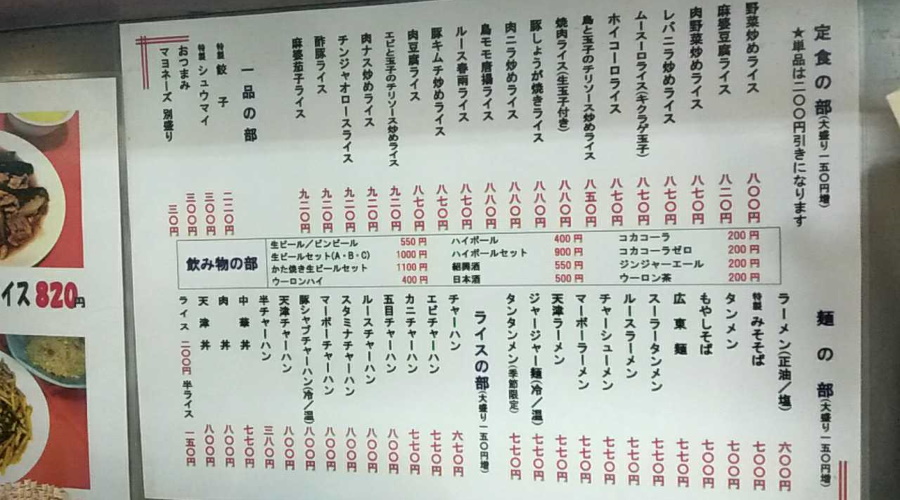 定食の部(大盛り一五〇円増)
★単品は二〇〇円引きになります
野菜炒めライス 八〇〇円
麻婆豆腐ライス 八二〇円
肉野菜炒めライス 八七〇円
レバニラ炒めライス 八七〇円
ムースーローライス(キクラゲ玉子) 八七〇円
ホイコーローライス 八七〇円
鳥と玉子のチリソース炒めライス 八五〇円
焼肉ライス(生玉子付き) 八八〇円
豚しょうが焼きライス 八八〇円
肉ニラ炒めライス 八八〇円
鳥モモ唐揚ライス 八八〇円
ルース春雨ライス 八七〇円
豚キムチ炒めライス 八七〇円
肉豆腐ライス 八七〇円
エビと玉子のチリソース炒めライス 九二〇円
肉ナス炒めライス 九二〇円
チンジャオロースライス 九二〇円
酢豚ライス 九二〇円
麻婆茄子ライス 九二〇円
一品の部
特製 餃子 二二〇円
特製 シュウマイ 三〇〇円
おつまみ 三〇〇円
マヨネーズ 別盛り 三〇円
飲み物の部
生ビール/ビンビール 550円
生ビールセット(A・B・C) 1000円
かた焼き生ビールセット 1100円
ウーロンハイ 400円
ハイボール 400円
ハイボールセット 900円
紹興酒 550円
日本酒 500円
コカコーラ 200円
コカコーラゼロ 200円
ジンジャーエール 200円
ウーロン茶 200円
麺の部(大盛り一五〇円増)
ラーメン(正油/塩) 六〇〇円
特製 みそそば 七〇〇円
タンメン 七〇〇円
もやしそば 七〇〇円
広東麺 七〇〇円
スーラータンメン 七七〇円
ルースラーメン 七七〇円
チャーシューメン 七七〇円
マーボーラーメン 七七〇円
天津ラーメン 七七〇円
ジャージャー麺(冷/温) 七七〇円
タンタンメン(季節限定) 七七〇円
ライスの部(大盛り一五〇円増)
チャーハン 六七〇円
エビチャーハン 七七〇円
カニチャーハン 七七〇円
五目チャーハン 八〇〇円
ルースチャーハン 八〇〇円
スタミナチャーハン 八〇〇円
マーボーチャーハン 八〇〇円
豚シャブチャーハン(冷/温) 八〇〇円
天津チャーハン 八〇〇円
半チャーハン 三八〇円
中華丼 七七〇円
肉丼 八〇〇円
天津丼 八〇〇円
ライス 二〇〇円 半ライス 一五〇円
イス820円